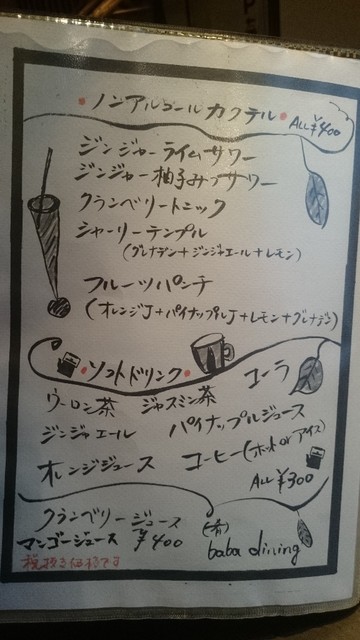 ノンアルコールカクテル ALL ¥400
ジンジャーライムサワー
ジンジャー柚子みつサワー
クランベリートニック
シャーリーテンプル
(グレナデン+ジンジャエール+レモン)
フルーツパンチ
(オレンジJ+パイナップルJ+レモン+グレナデン)
ソフトドリンク
コーラ
ウーロン茶 ジャスミン茶
ジンジャエール パイナップルジュース
オレンジジュース コーヒー(ホット or アイス)
ALL ¥300
クランベリージュース
マンゴージュース ¥400
税抜き価格です
baba dining